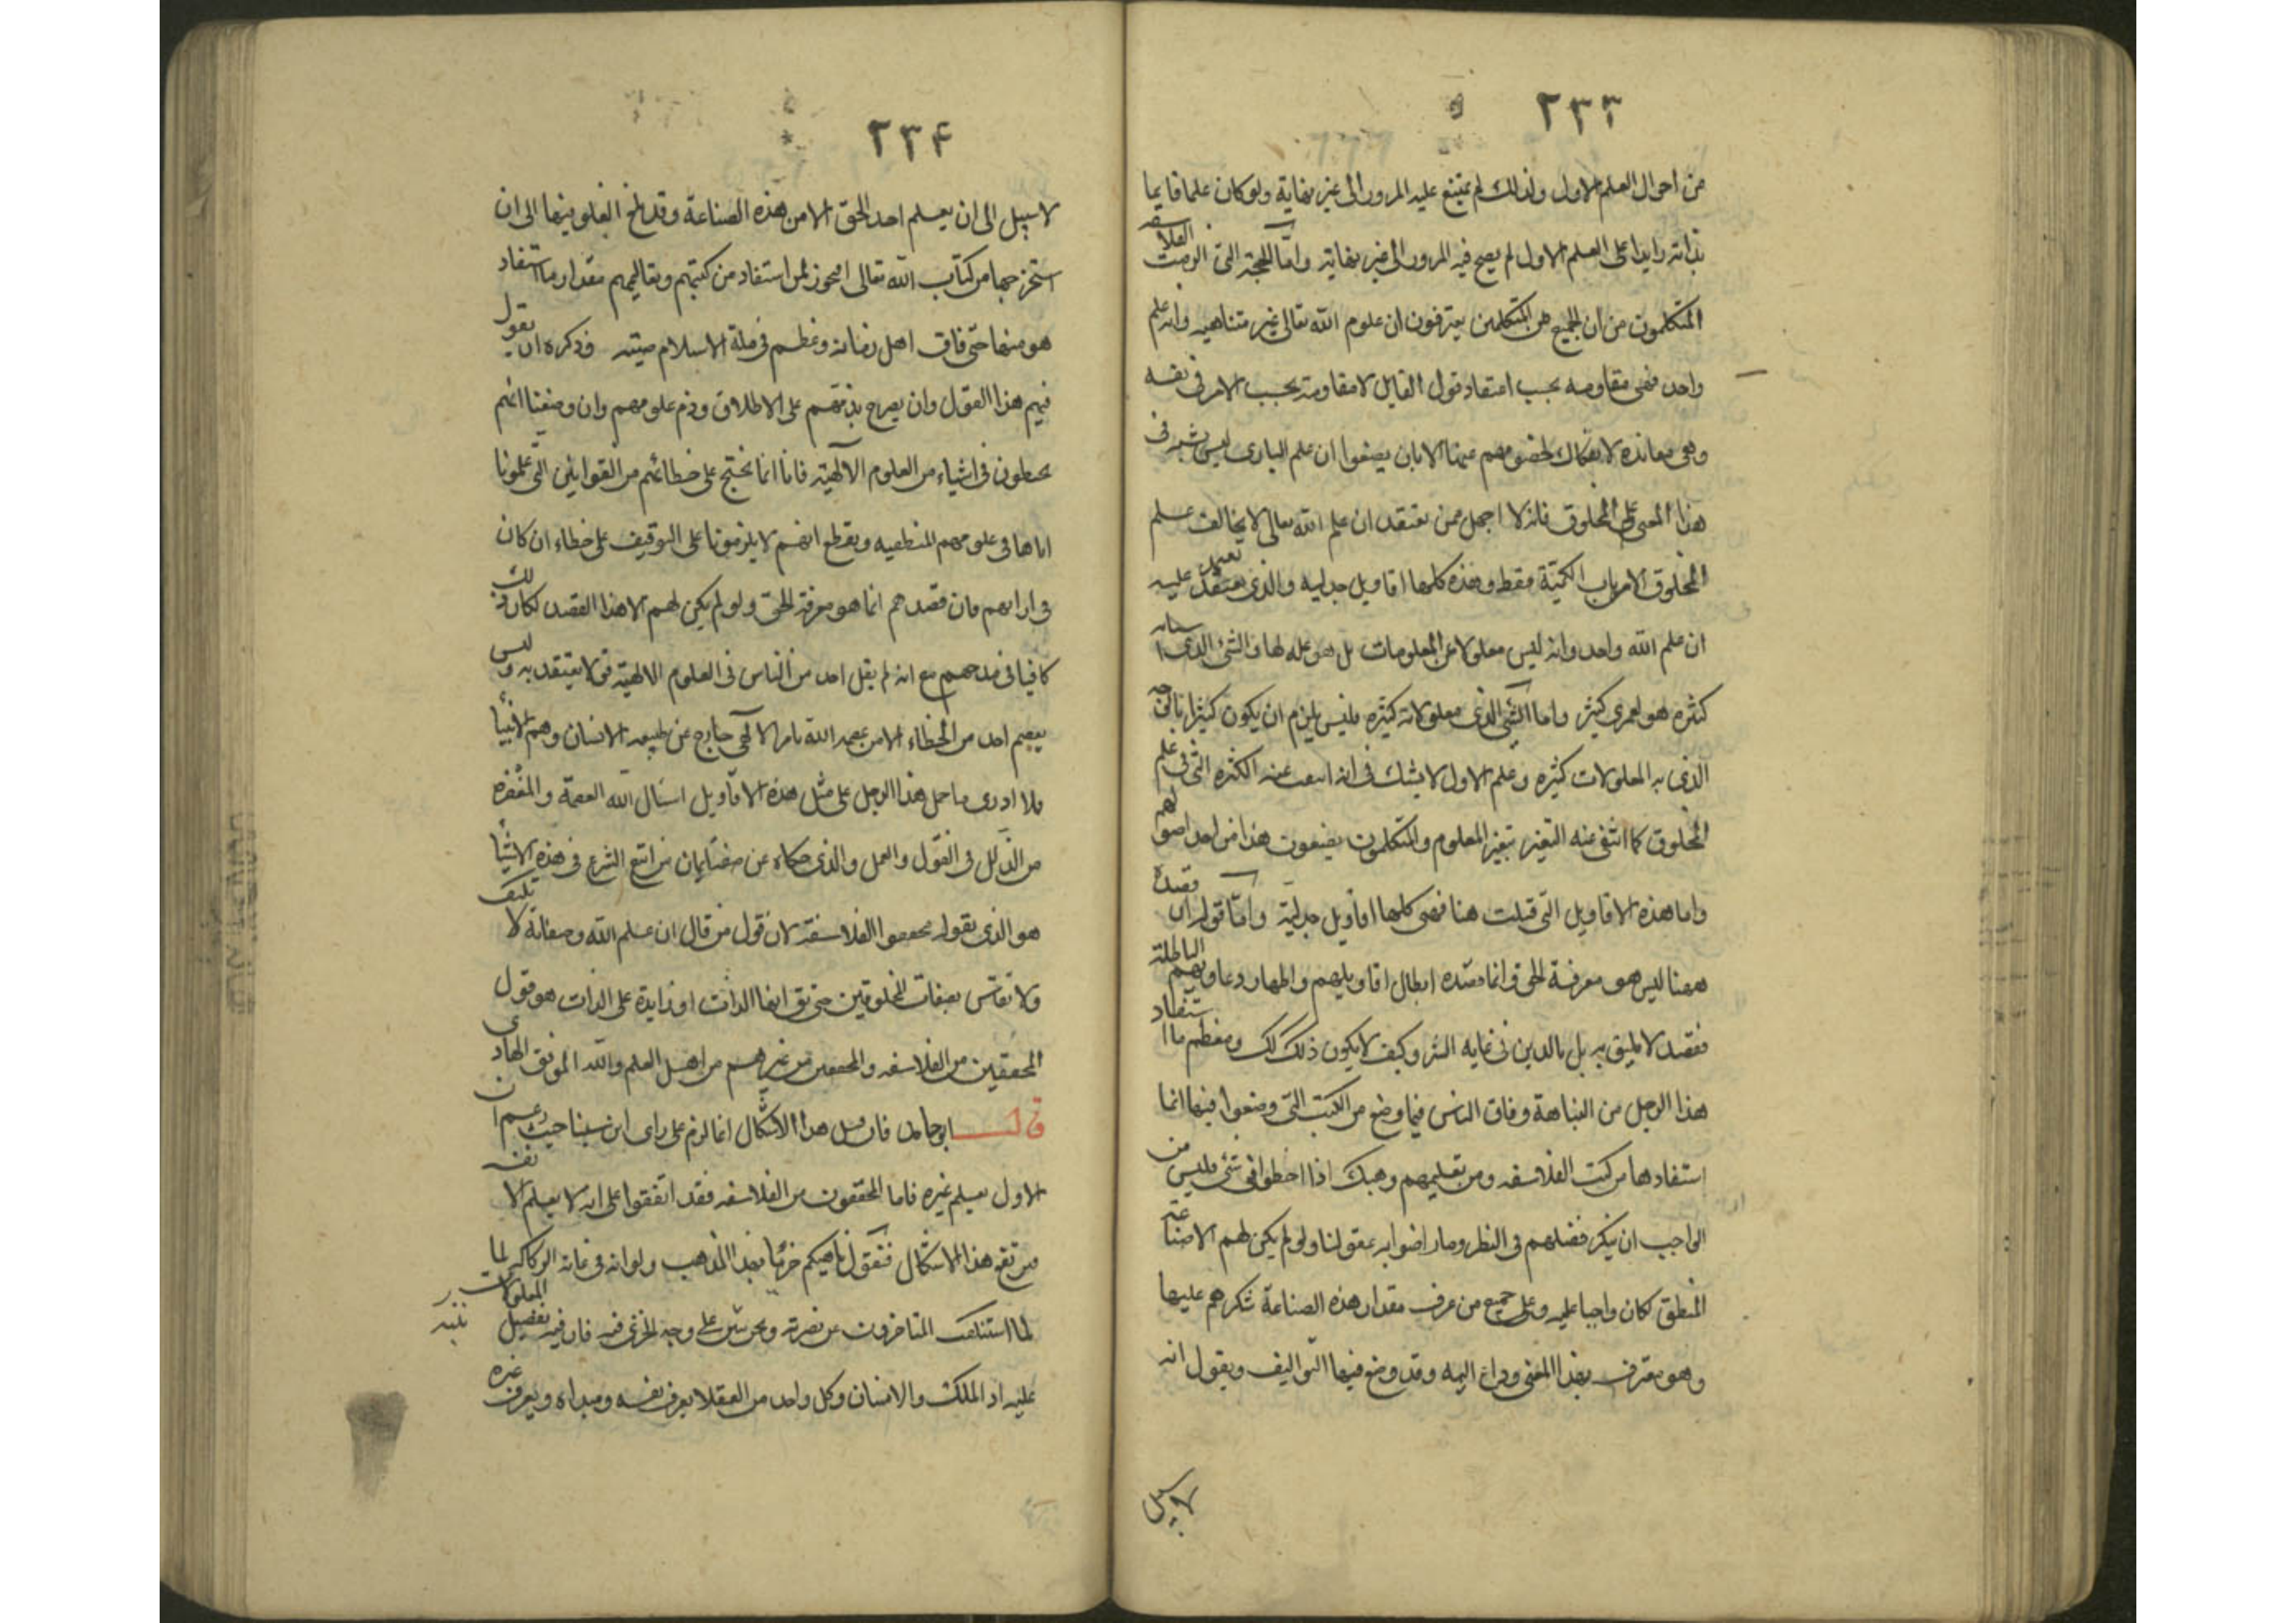 ٢٣٣
من احوال العلم الاول ولذلك لم يمتنع عليه المرور الى غير نهاية ولو كان علما قايما
بذاته زايدا على العلم الاول لم يصح فيه المرور الى غير نهاية واما الحجة التى الزمت الفلاسفه
المتكلمون من ان الجميع من المتكلمين يعترفون ان علوم الله تعالى غير متناهيه وانه علم
واحد فهى مقاومه بحسب اعتقاد قول القايل لا مقاومة بحسب الامر فى نفسه
وهى معانده لا انفكاك لخصومهم عنها الا بان يضعوا ان علم البارى ليس يشبه فى
هذا المعنى علم المخلوق فانه لا اجهل ممن يعتقد ان علم الله تعالى لا يخالف علم
المخلوق الا من باب الكمية فقط وهذه كلها اقاويل جدليه والذى يعتمد عليه
ان علم الله واحد وانه ليس معلولا عن المعلومات بل هو علة لها والشئ الذى اسبابه
كثره هو لعمرى كثير واما الشئ الذى معلولاته كثيره فليس يلزم ان يكون كثيرا بالوجه
الذى به المعلولات كثيره وعلم الاول لا يشك فى انه انتفت عنه الكثره التى فى علم
المخلوق كما انتفى عنه التغير بتغير المعلوم والمتكلمون يضعون هذا من احد اصولهم
واما هذه الاقاويل التى قيلت هنا فهى كلها اقاويل جدلية واما قوله ان قصده
ههنا ليس هو معرفة الحق وانما قصده ابطال اقاويلهم واظهار دعاويهم الباطلة
فقصد لا يليق به بل بالذين فى غايه الشر وكيف لا يكون ذلك كك ومعظم ما استفاد
هذا الرجل من النباهة وفاق الناس فيما وضع من الكتب التى وضعوا فيها انما
استفادها من كتب الفلاسفه ومن تعليمهم وهبك اذا اخطوا فى شئ فليس من
الواجب ان ينكر فضلهم فى النظر وما راضوا به عقولنا ولو لم يكن لهم الا صناعة
المنطق لكان واجبا عليه وعلى جميع من عرف مقدار هذه الصناعة شكرهم عليها
وهو معترف بهذا المعنى وداع اليه وقد وضع فيها التواليف ويقول انه
لا سبيل
٢٣۴
لا سبيل الى ان يعلم احد الحق الا من هذه الصناعة وقد بلغ الغلو فيها الى ان
استخرجها من كتاب الله تعالى افيجوز لمن استفاد من كتبهم وتعاليمهم مقدار ما استفاد
هو منها حتى فاق اهل زمانه وعظم فى ملة الاسلام صيته وذكره ان يقول
فيهم هذا القول وان يصرح بذمهم على الاطلاق وذم علومهم وان وضعنا انهم
يخطون فى اشياء من العلوم الالهية فانا انما نحتج على خطائهم من القوانين التى علمونا
اياها فى علومهم المنطقيه ونقطع انهم لا يلزمونا على التوقيف على خطاء ان كان
فى ارائهم فان قصدهم انما هو معرفة الحق ولو لم يكن لهم الا هذا القصد لكان ذلك
كافيا فى مدحهم مع انه لم يقل احد من الناس فى العلوم الالهية قولا يعتقد به وليس
يعصم احد من الخطاء الا من عصمه الله بامر الآهى خارج عن طبيعه الانسان وهم الانبياء
فلا ادرى ما حمل هذا الرجل على مثل هذه الاقاويل اسال الله العصمة والمغفره
من الزلل فى القول والعمل والذى حكاه عن صفة ايمان من اتبع الشرع فى هذه الاشياء
هو الذى يقوله محققوا الفلاسفة لان قول من قال ان علم الله وصفاته لا تكيف
ولا تقاس بصفات المخلوقين حتى يق انها الذات او زايدة على الذات هو قول
المحققين من الفلاسفه والمحققين من غيرهم من اهل العلم والله الموفق الهادى
قال ابو حامد فان قيل هذا الاشكال انما لزم على راى ابن سينا حيث زعم ان
الاول يعلم غيره فاما المحققون من الفلاسفه فقد اتفقوا على انه لا يعلم الا نفسه
فيرتفع هذا الاشكال فنقول ناهيكم خزيا بهذا المذهب ولو انه فى غاية الركاكه لما
لما استنكف المتاخرون عن نصرته ونحن ننبه على وجه الخزى فيه فان فيه تفضيل المعلولات
عليه اذ الملك والانسان وكل واحد من العقلا يعرف نفسه ومبداه ويعرف غيره